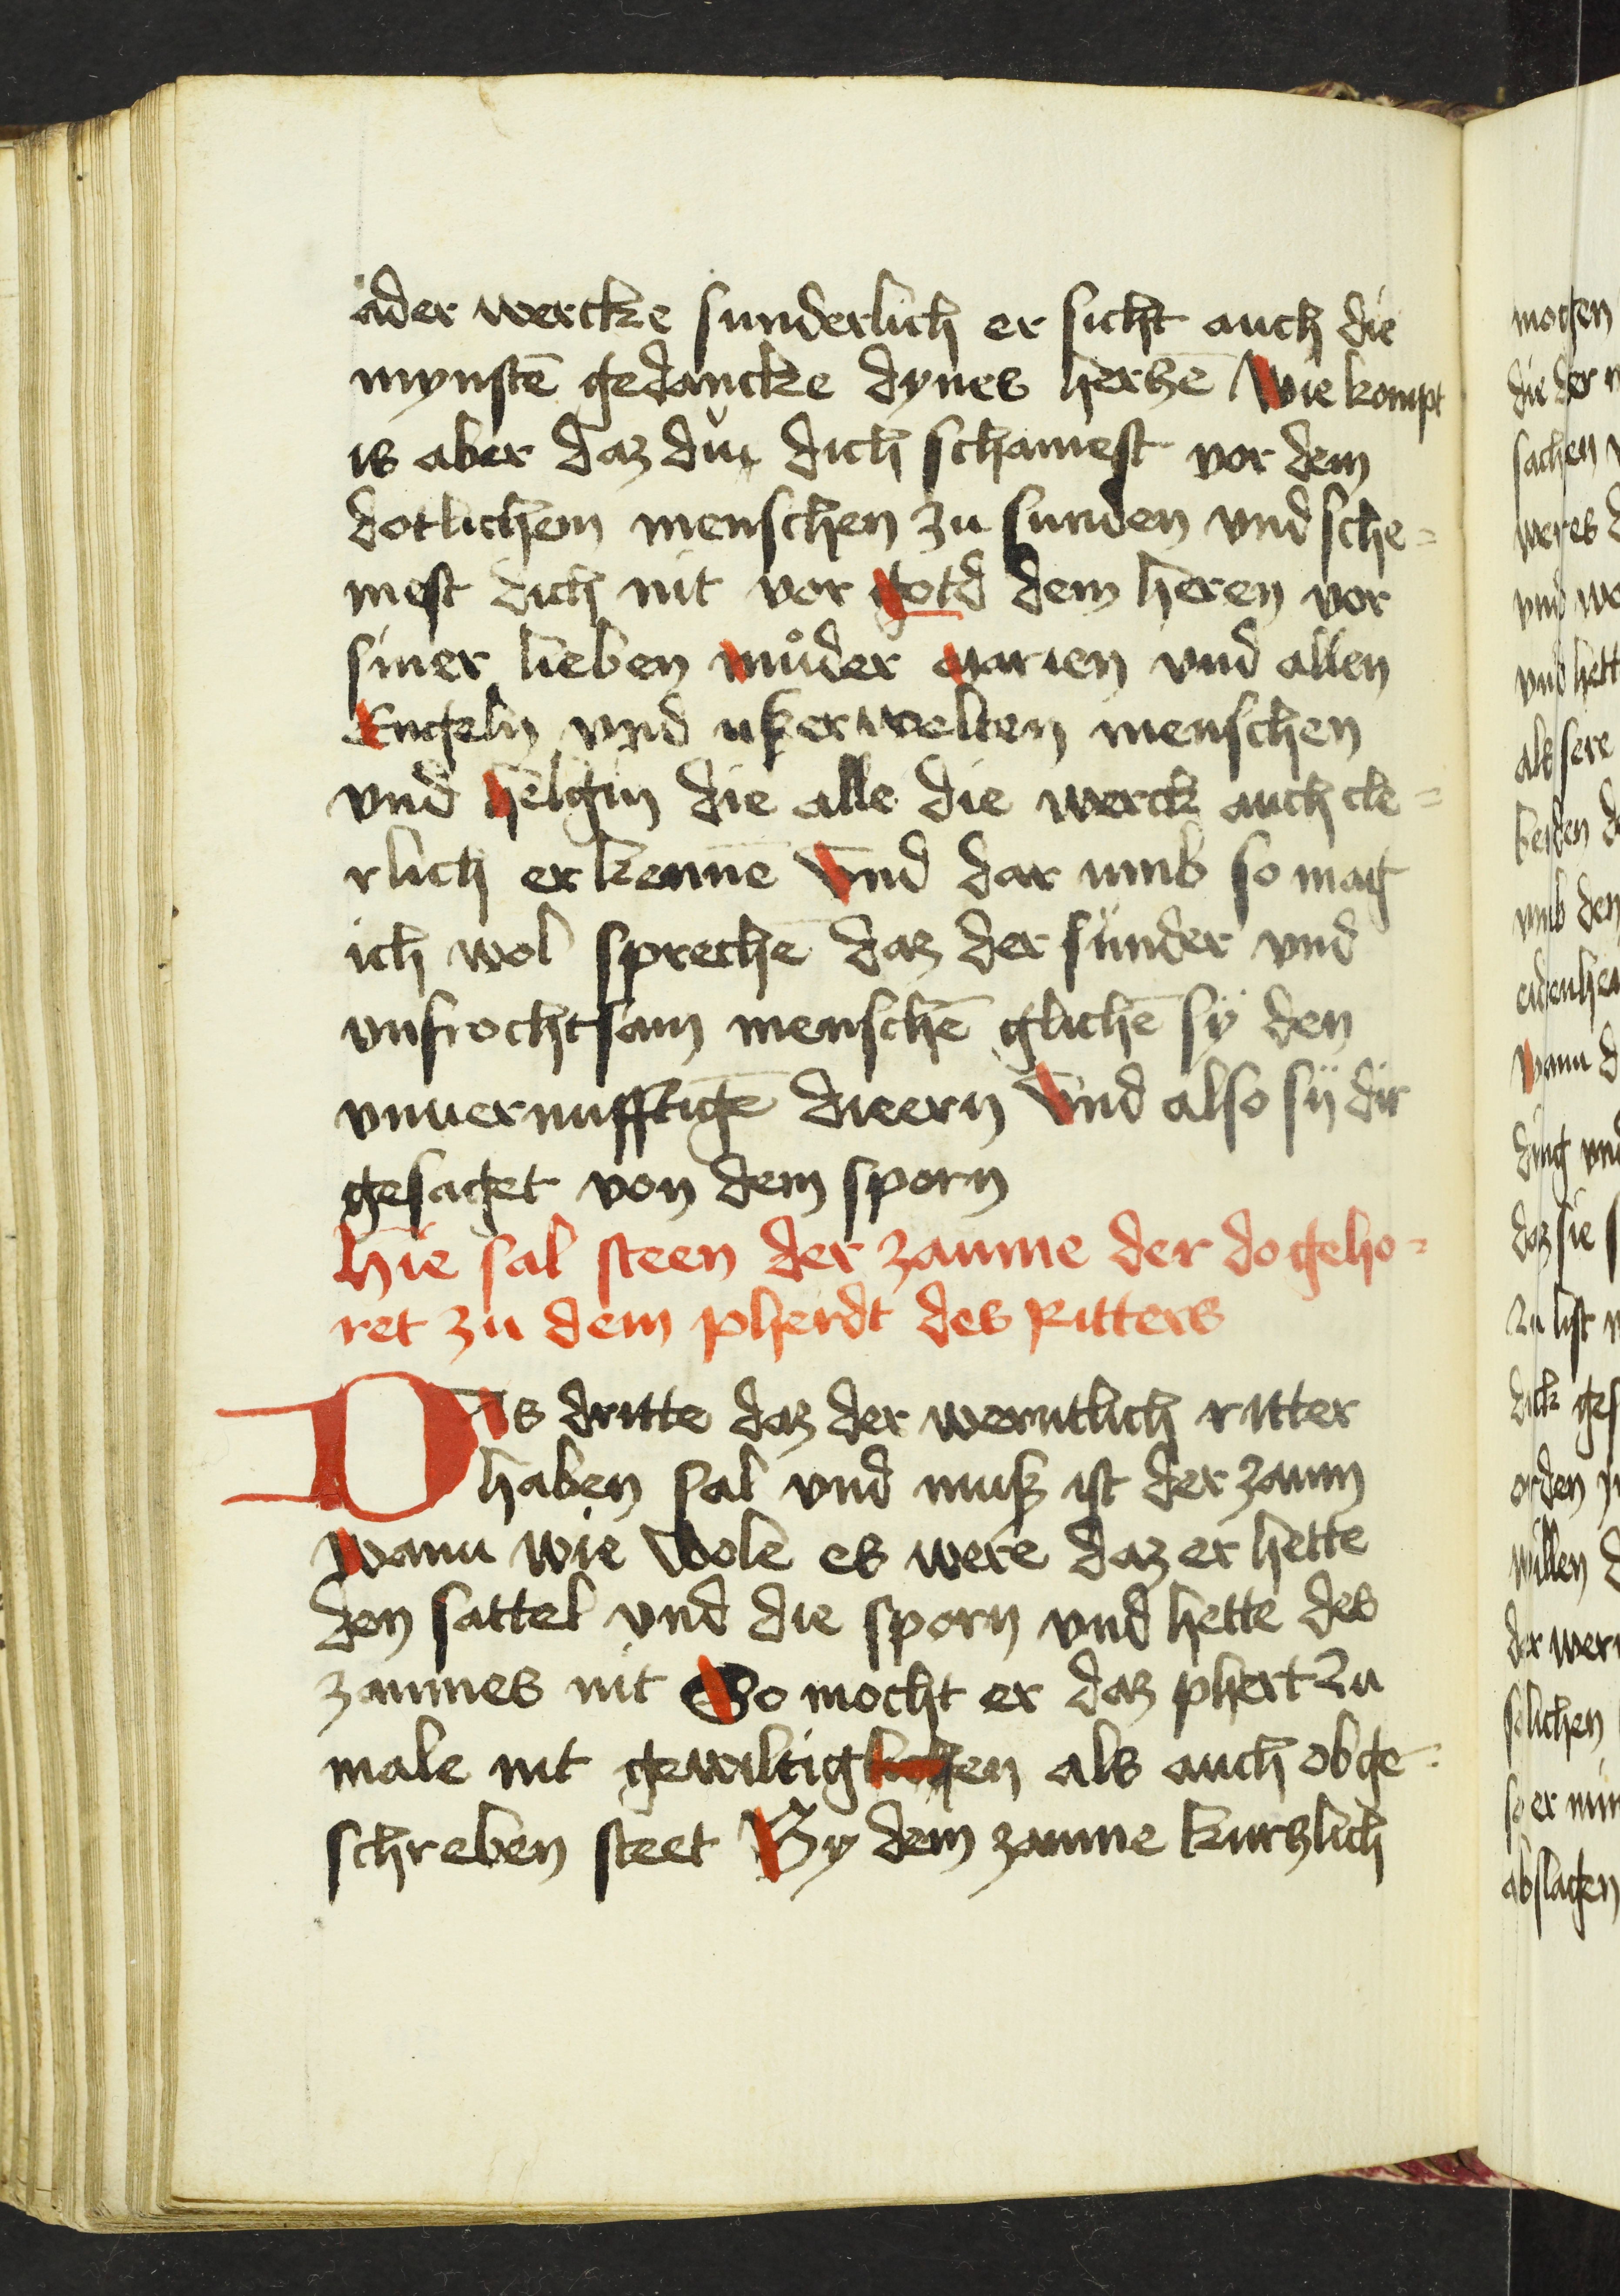 ader wercke sunderlich er sicht auch die
mynstē gedancke dynes herszē Wie kompt
is aber daz du dich schamest vor dem
dotlichem menschen zu sunden vnd sche=
mest dich nit vor gotd dem heren vor
siner lieben můder marien vnd allen
Engeln vnd ußerwelten menschen
vnd helgin die alle die werck auch cle=
rlich erkennē Vnd dar umb so mag
ich wol sprechē daz der sunder vnd
vnfrochtsam menschē glichē sÿ den
vnuernufftigē dieern Vnd also sÿ dir
gesaget von dem sporn
Hie sal steen der zaume der do geho=
ret zu dem pherdt des Ritters
Dis dritte daz der werntlich ritter
haben sal vnd muß ist der zaum
Wann wie Wole es were daz er hette
den sattel vnd die sporn vnd hette des
zaumes nit So mocht er daz phert Zu
male nit gewiltiglichen als auch obge=
schreben steet By dem zaume kurtzlich
mogen
sachen
weres
vnd
vnd hett
als sere
vmb den
Wann
ding vnd
daz sie
Zu list
dick
orden
willen
der
solichen
so er
abslagen